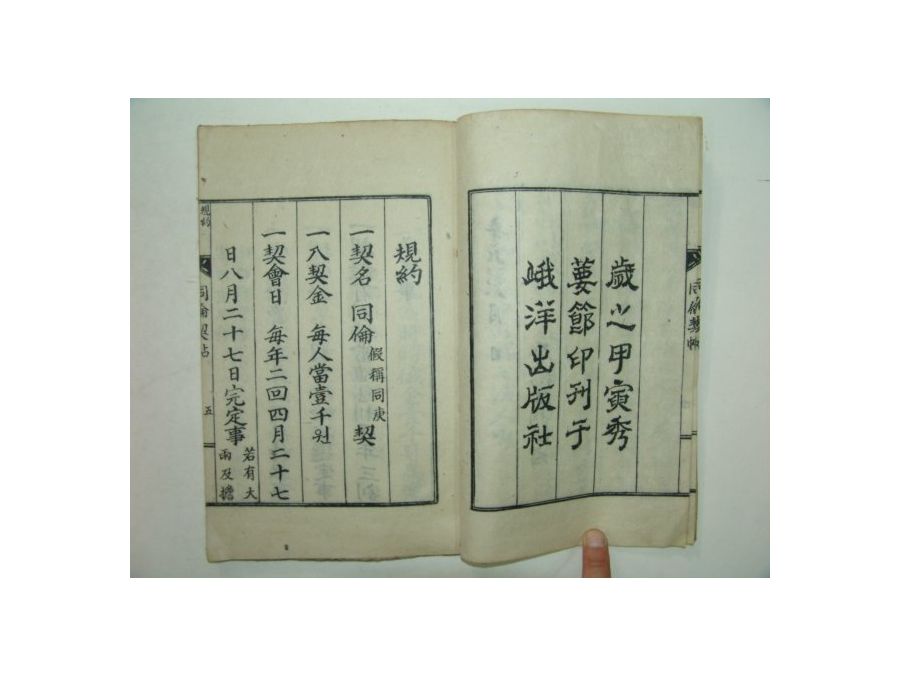 歲之甲寅秀
葽節印刊于
峨洋出版社
規約
一契名 同倫 假稱同庚 契
一入契金 每人當壹千원
一契會日 每年二回四月二十七
日八月二十七日完定事 若有大
雨及擔
規約
同倫契帖
五